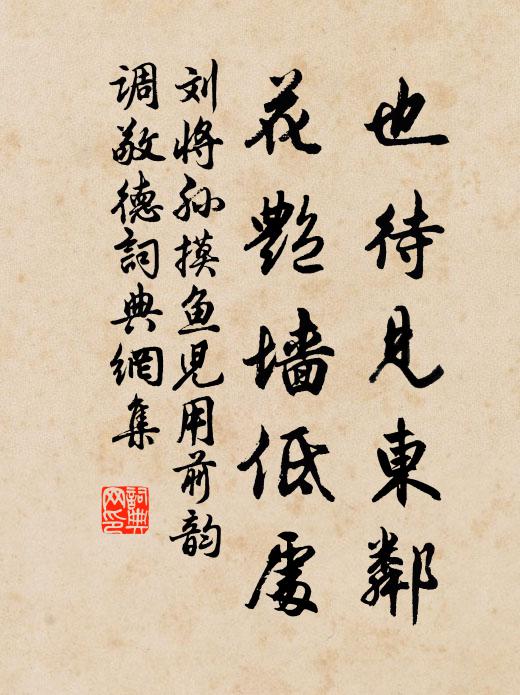 也待見東鄰
花艷墙低處
刘將孙摸鱼児用前韵
调敬德詞典網集
詞典网印